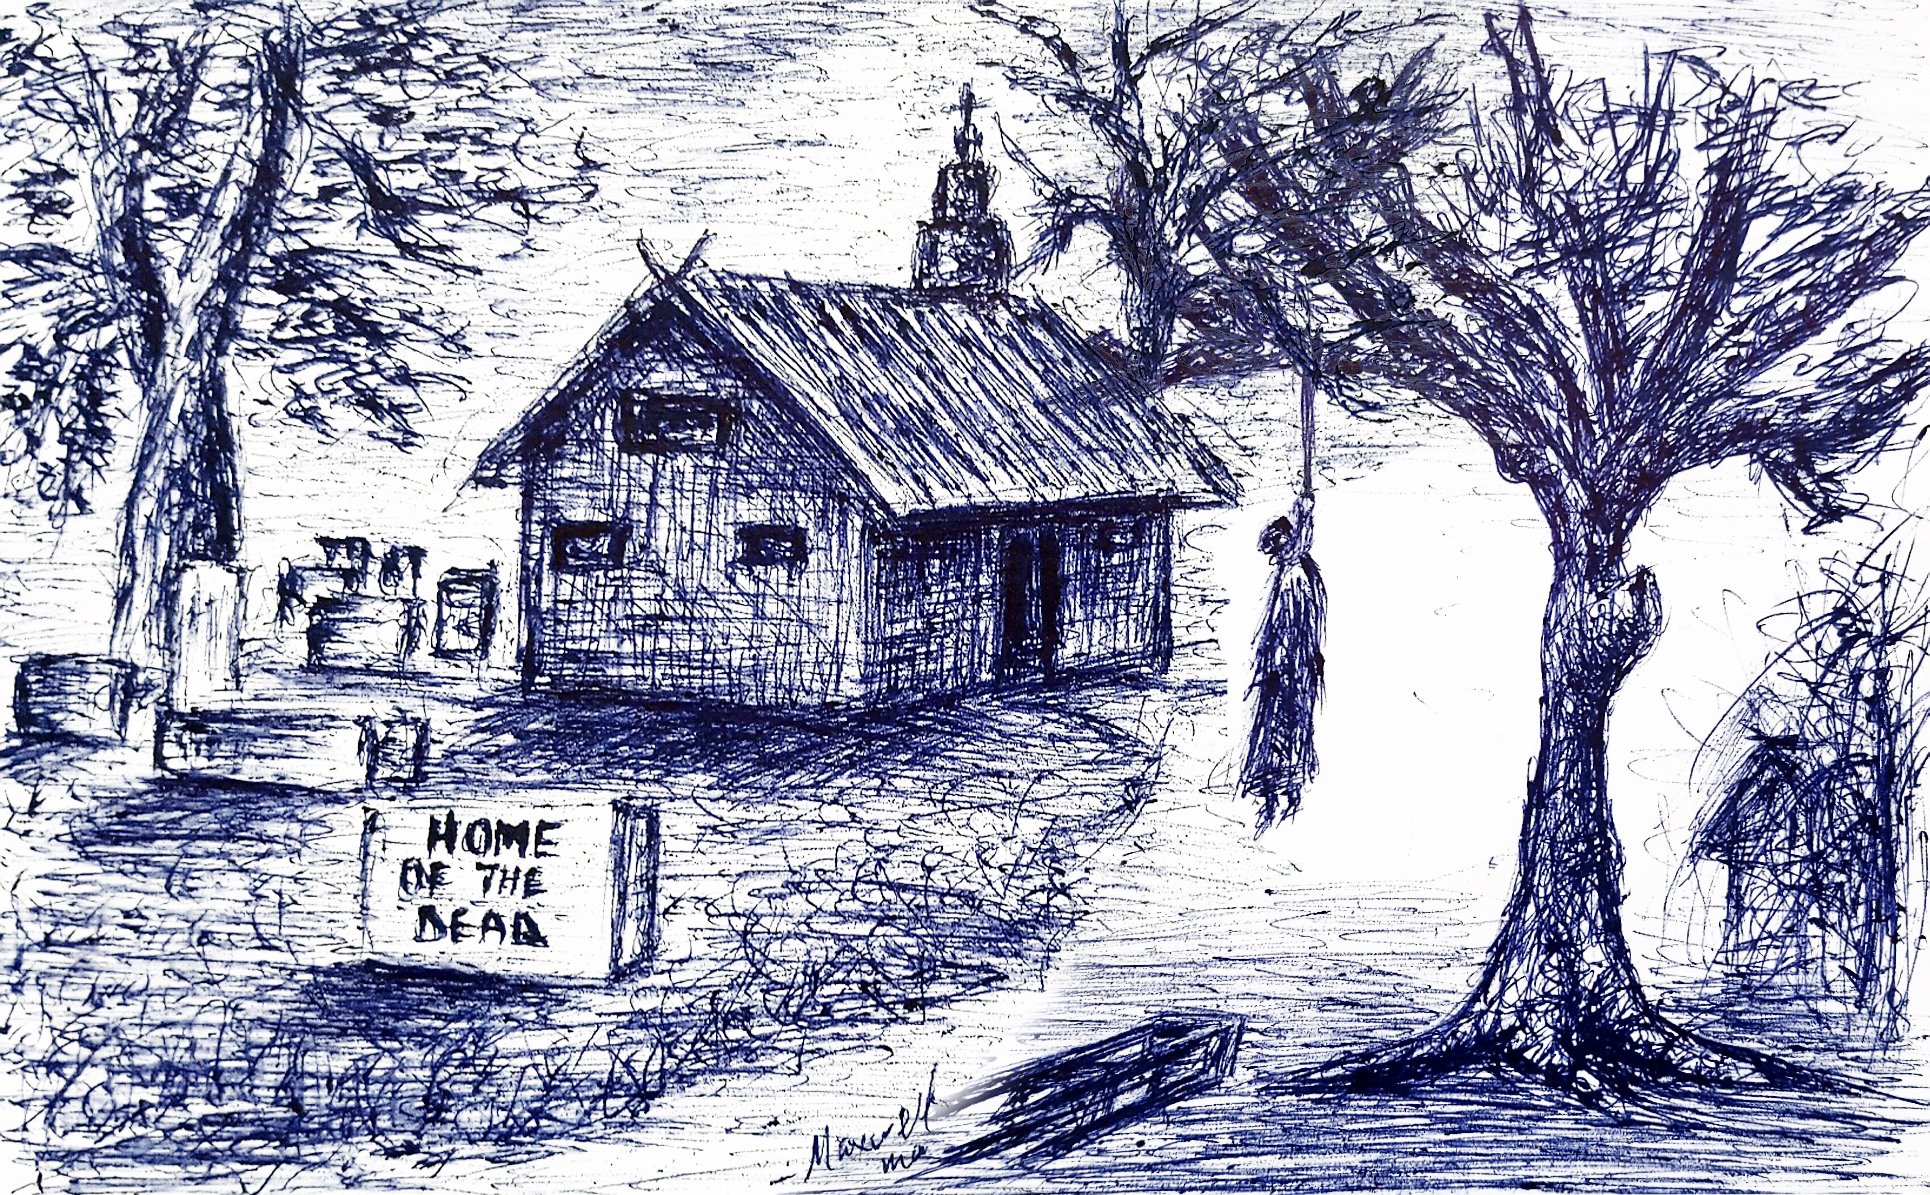 HOME
OF THE
DEAD
Maxwell